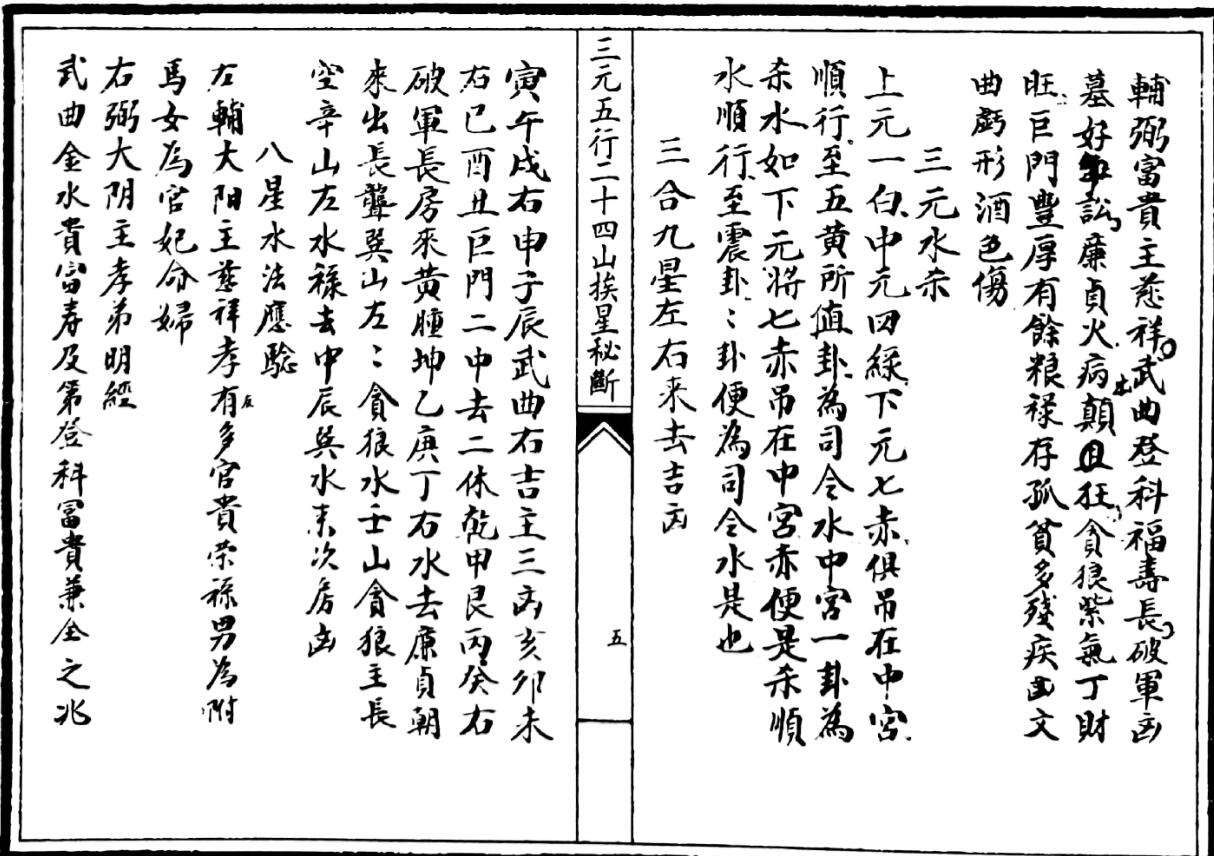 輔弼富貴主慈祥武曲登科福壽長破軍凶
墓好爭訟廉貞火病顛且狂貪狼紫氣丁財
旺巨門豐厚有餘粮祿存孤貧多殘疾文
曲虧形酒色傷
三元水杀
上元一白中元四綠下元七赤俱吊在中宮
順行至五黃所值卦為司令水中宮一卦為
杀水如下元將七赤吊在中宮赤便是杀順
水順行至震卦〻卦便為司令水是也
三合九星左右来去吉凶
三元五行二十四山挨星秘斷
五
寅午戌右申子辰武曲右吉主三凶亥卯未
右巳酉丑巨門二中去二休乾甲艮丙癸右
破軍長房來黃腫坤乙庚丁右水去廉貞朝
來出長聾巽山左〻貪狼水壬山貪狼主長
空辛山左水祿去中辰巽水来次房凶
八星水法應驗
左輔大陽主慈祥孝有多官貴荣祿男為附
馬女為官妃命婦
右弼大阴主孝弟明經
武曲金水貴富寿及第登科富貴兼全之兆